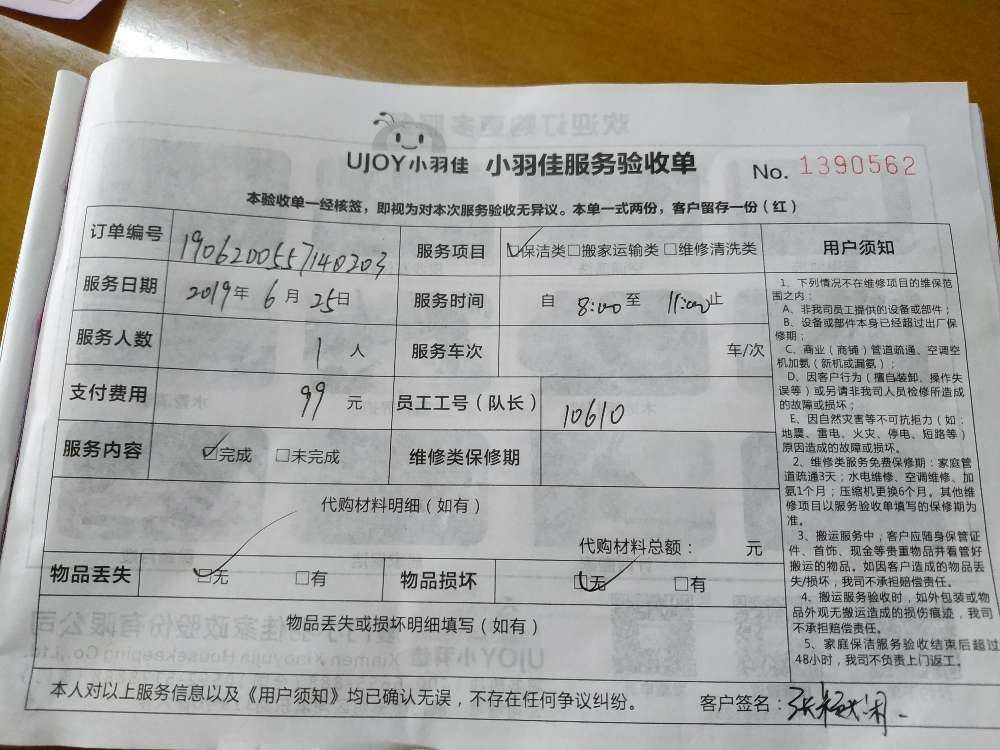 UJOY小羽佳 小羽佳服务验收单 No. 1390562
本验收单一经核签，即视为对本次服务验收无异议。本单一式两份，客户留存一份（红）
订单编号 1906200557140203 服务项目 ☑保洁类□搬家运输类□维修清洗类
服务日期 2019年 6月 25日 服务时间 自 8:00至 11:00止
服务人数 1 人 服务车次 车/次
支付费用 99 元 员工工号（队长） 10610
服务内容 ☑完成 □未完成 维修类保修期
代购材料明细（如有）
代购材料总额： 元
物品丢失 ☑无 □有 物品损坏 ☑无 □有
物品丢失或损坏明细填写（如有）
本人对以上服务信息以及《用户须知》均已确认无误，不存在任何争议纠纷。 客户签名：
用户须知
1、下列情况不在维修项目的维保范
围之内：
A、非我司员工提供的设备或部件；
B、设备或部件本身已经超过出厂保
修期；
C、商业（商铺）管道疏通、空调空
机加氨（新机或漏氨）；
D、因客户行为（擅自装卸、操作失
误等）或另请非我司人员检修所造成
的故障或损坏；
E、因自然灾害等不可抗拒力（如：
地震、雷电、火灾、停电、短路等）
原因造成的故障或损坏。
2、维修类服务免费保修期：家庭管
道疏通3天；水电维修、空调维修、加
氨1个月；压缩机更换6个月。其他维
修项目以服务验收单填写的保修期为
准。
3、搬运服务中，客户应随身保管证
件、首饰、现金等贵重物品并看管好
搬运的物品。如因客户造成的物品丢
失/损坏，我司不承担赔偿责任。
4、搬运服务验收时，如外包装或物
品外观无搬运造成的损伤痕迹，我司
不承担赔偿责任。
5、家庭保洁服务验收结束后超过
48小时，我司不负责上门返工。